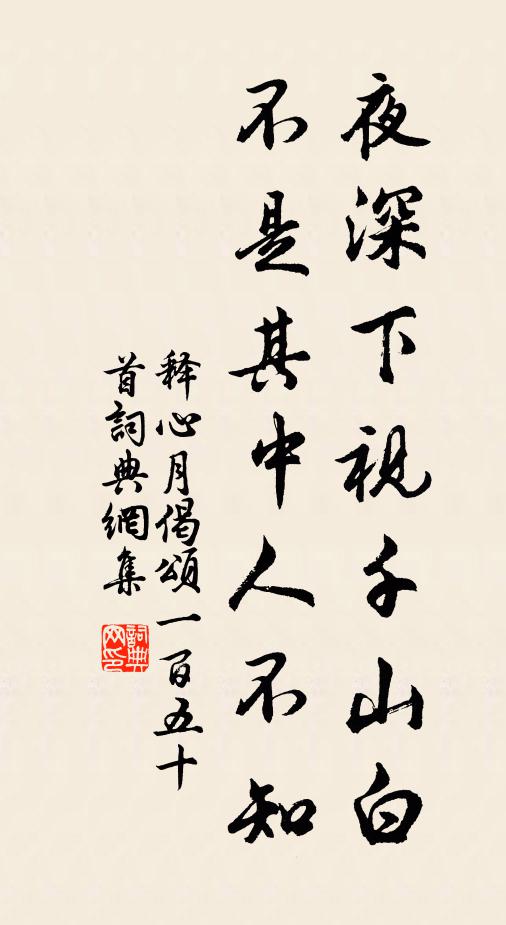 夜深下視千山白
不是其中人不知
释心月偈頌一百五十
首詞典網集
詞典
网印